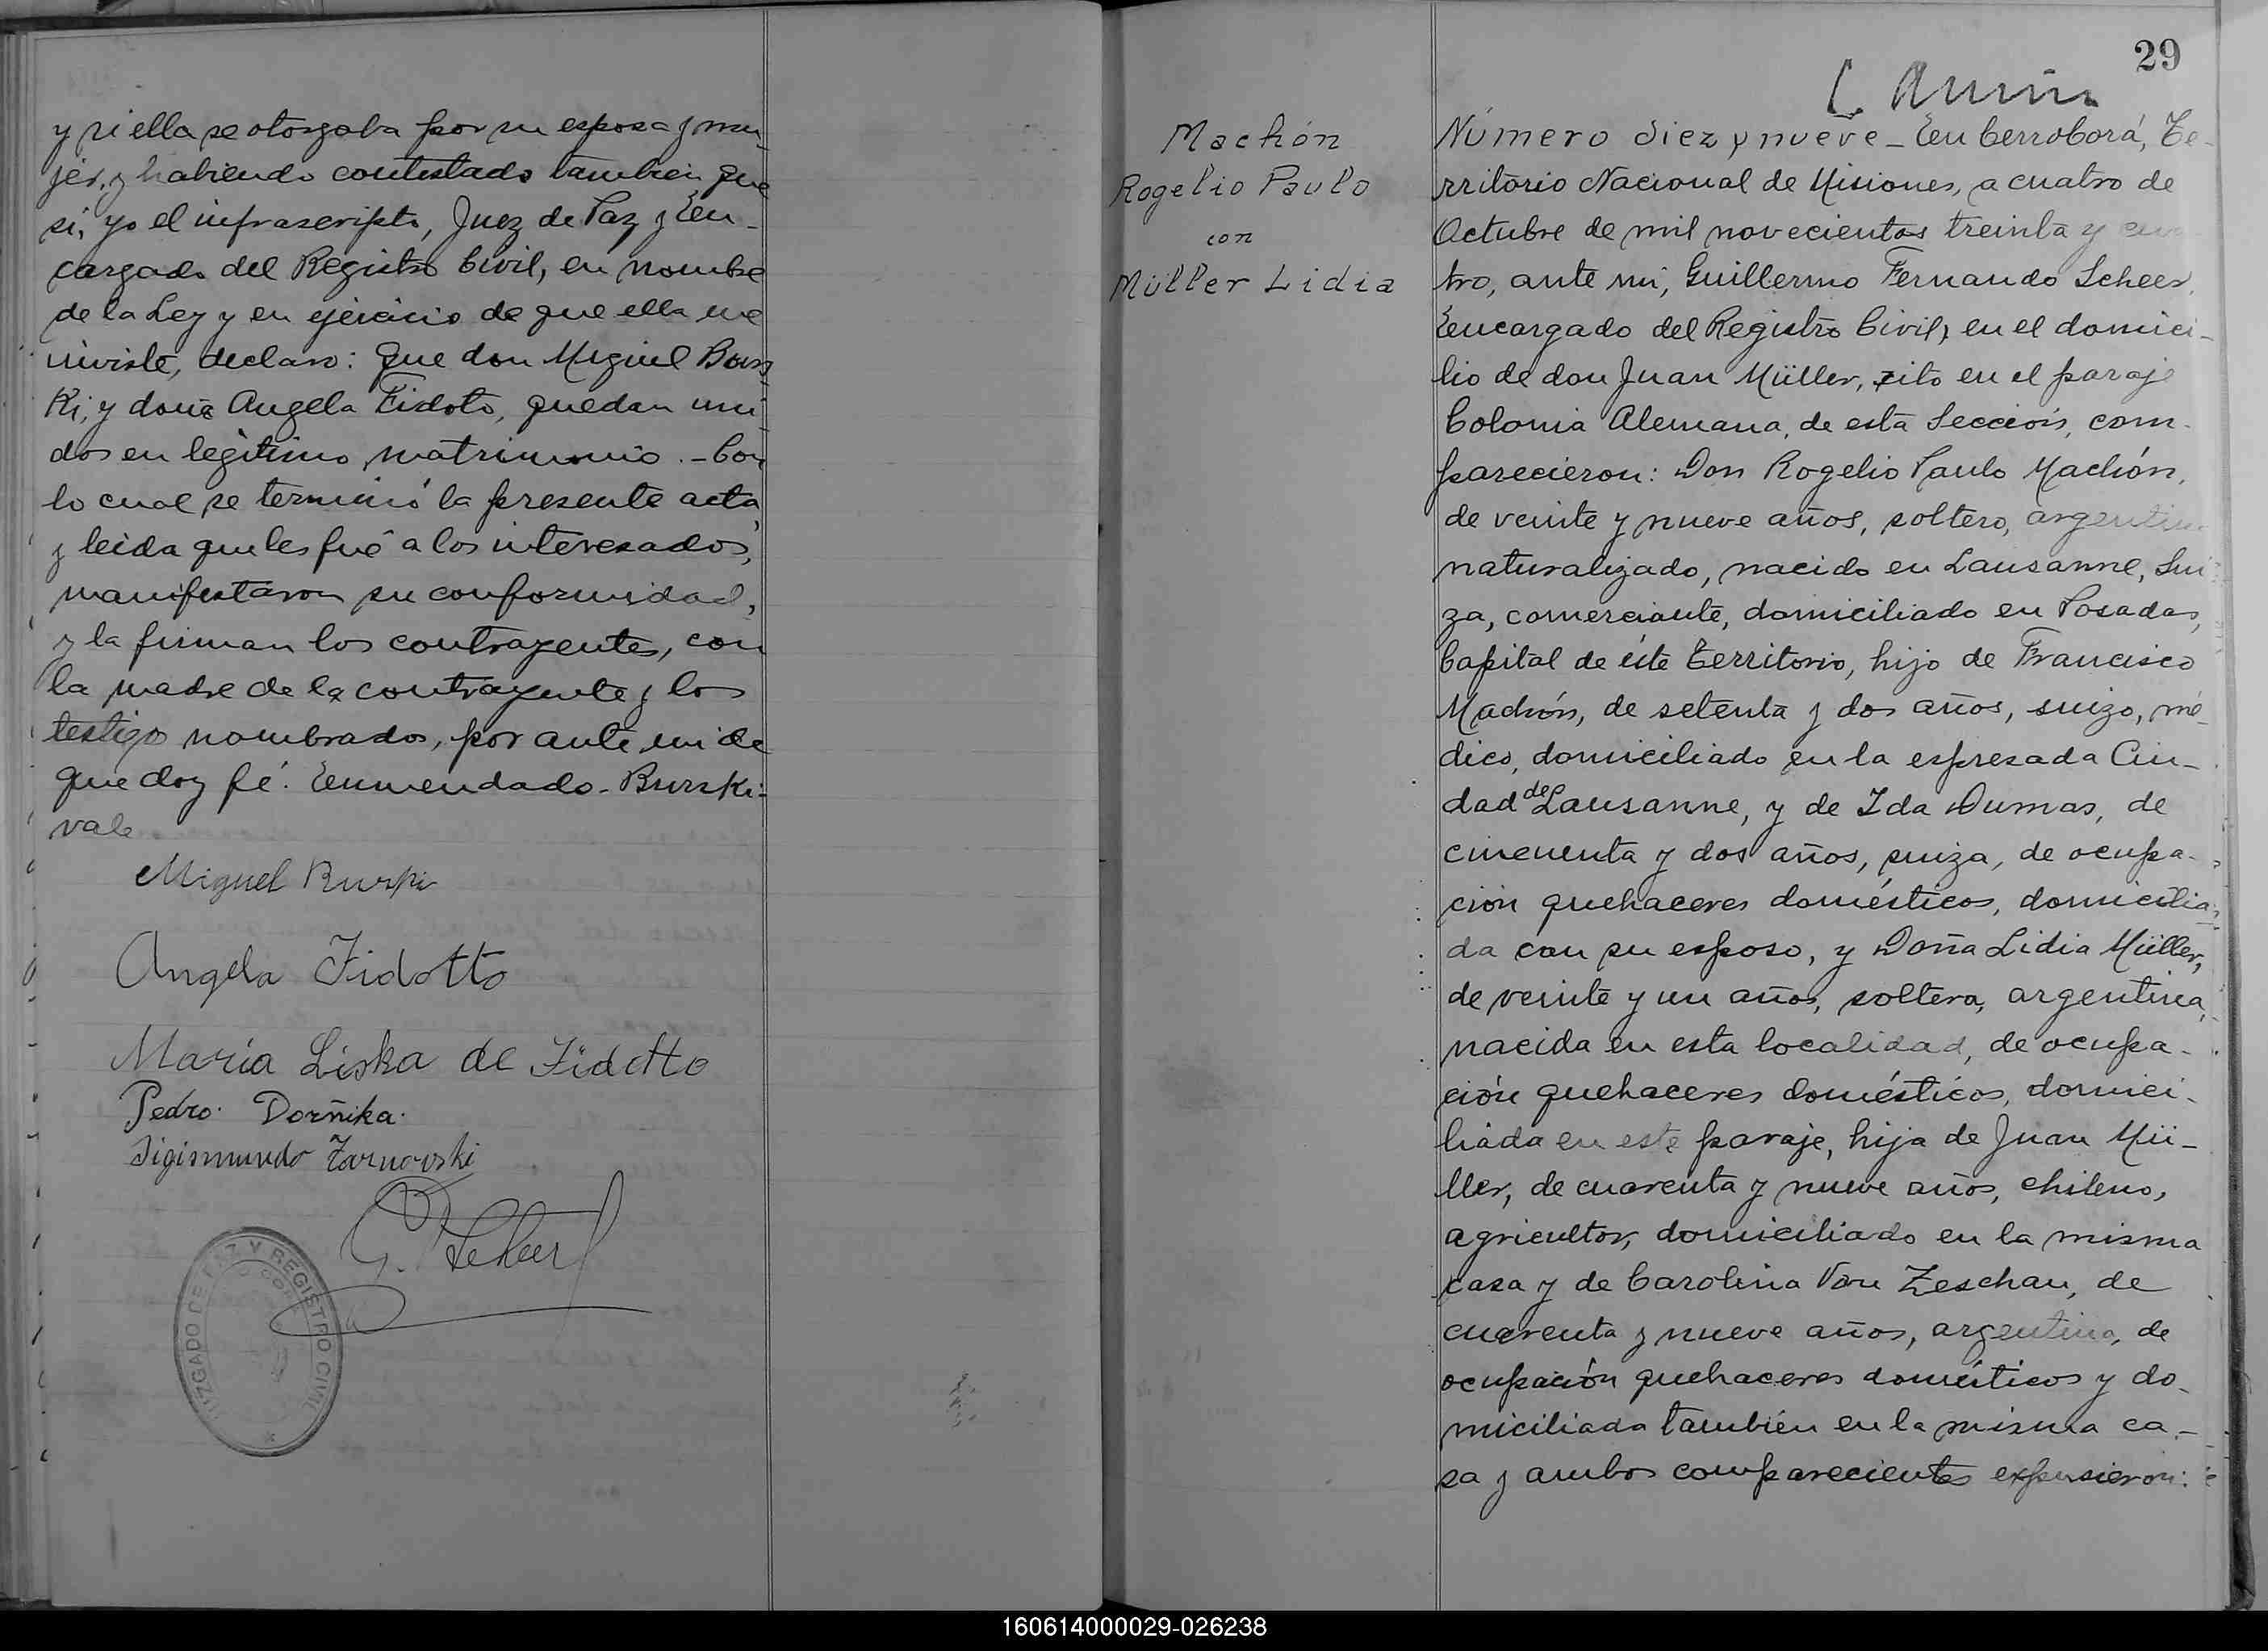 y si ella se otorgaba por su esposa y mu-
jer, y habiendo contestado tambien que
sí, yo el infrascripto, Juez de Paz y En-
cargado del Registro Civil, en nombre
de la Ley y en ejercicio de que ella me
inviste, declaro: Que don Miguel Burs-
Ki, y doña Angela Fidoto, quedan uni-
dos en legítimo matrimonio.- Con
lo cual se terminó la presente acta,
y leida que les fué a los interesados,
manifestaron su conformidad,
y la firman los contrayentes, con
la madre de la contrayente y los
testigos nombrados, por ante mi de
que doy fé. Enmendado-Burski-
vale
Miguel Burski
Angela Fidotto
María Liska de Fidotto
Pedro Dorñika.
Sigismundo Zarnovski
G. F. Scheer
JUZGADO DE PAZ Y REGISTRO CIVIL
29
Machón
Rogelio Paulo
con
Müller Lidia
Número diez y nueve - En Cerroborá, Te-
rritorio Nacional de Misiones, a cuatro de
Octubre de mil novecientos treinta y cua-
tro, ante mi, Guillermo Fernando Scheer,
Encargado del Registro Civil, en el domici-
lio de don Juan Müller, sito en el paraje
Colonia Alemana, de esta Sección, com-
parecieron: Don Rogelio Paulo Machón,
de veinte y nueve años, soltero, argentino
naturalizado, nacido en Lausanne, Sui-
za, comerciante, domiciliado en Posadas,
Capital de éste Territorio, hijo de Francisco
Machón, de setenta y dos años, suizo, mé-
dico, domiciliado en la espresada Ciu-
dad de Lausanne, y de Ida Dumas, de
cincuenta y dos años, suiza, de ocupa-
ción quehaceres domésticos, domicilia-
da con su esposo, y Doña Lidia Müller,
de veinte y un años, soltera, argentina,
nacida en esta localidad, de ocupa-
ción quehaceres domésticos, domici-
liada en este paraje, hija de Juan Mü-
ller, de cuarenta y nueve años, chileno,
agricultor, domiciliado en la misma
casa y de Carolina Von Zeschau, de
cuarenta y nueve años, argentina, de
ocupación quehaceres domésticos y do-
miciliada también en la misma ca-
sa y ambos comparecientes expusieron:
160614000029-026238